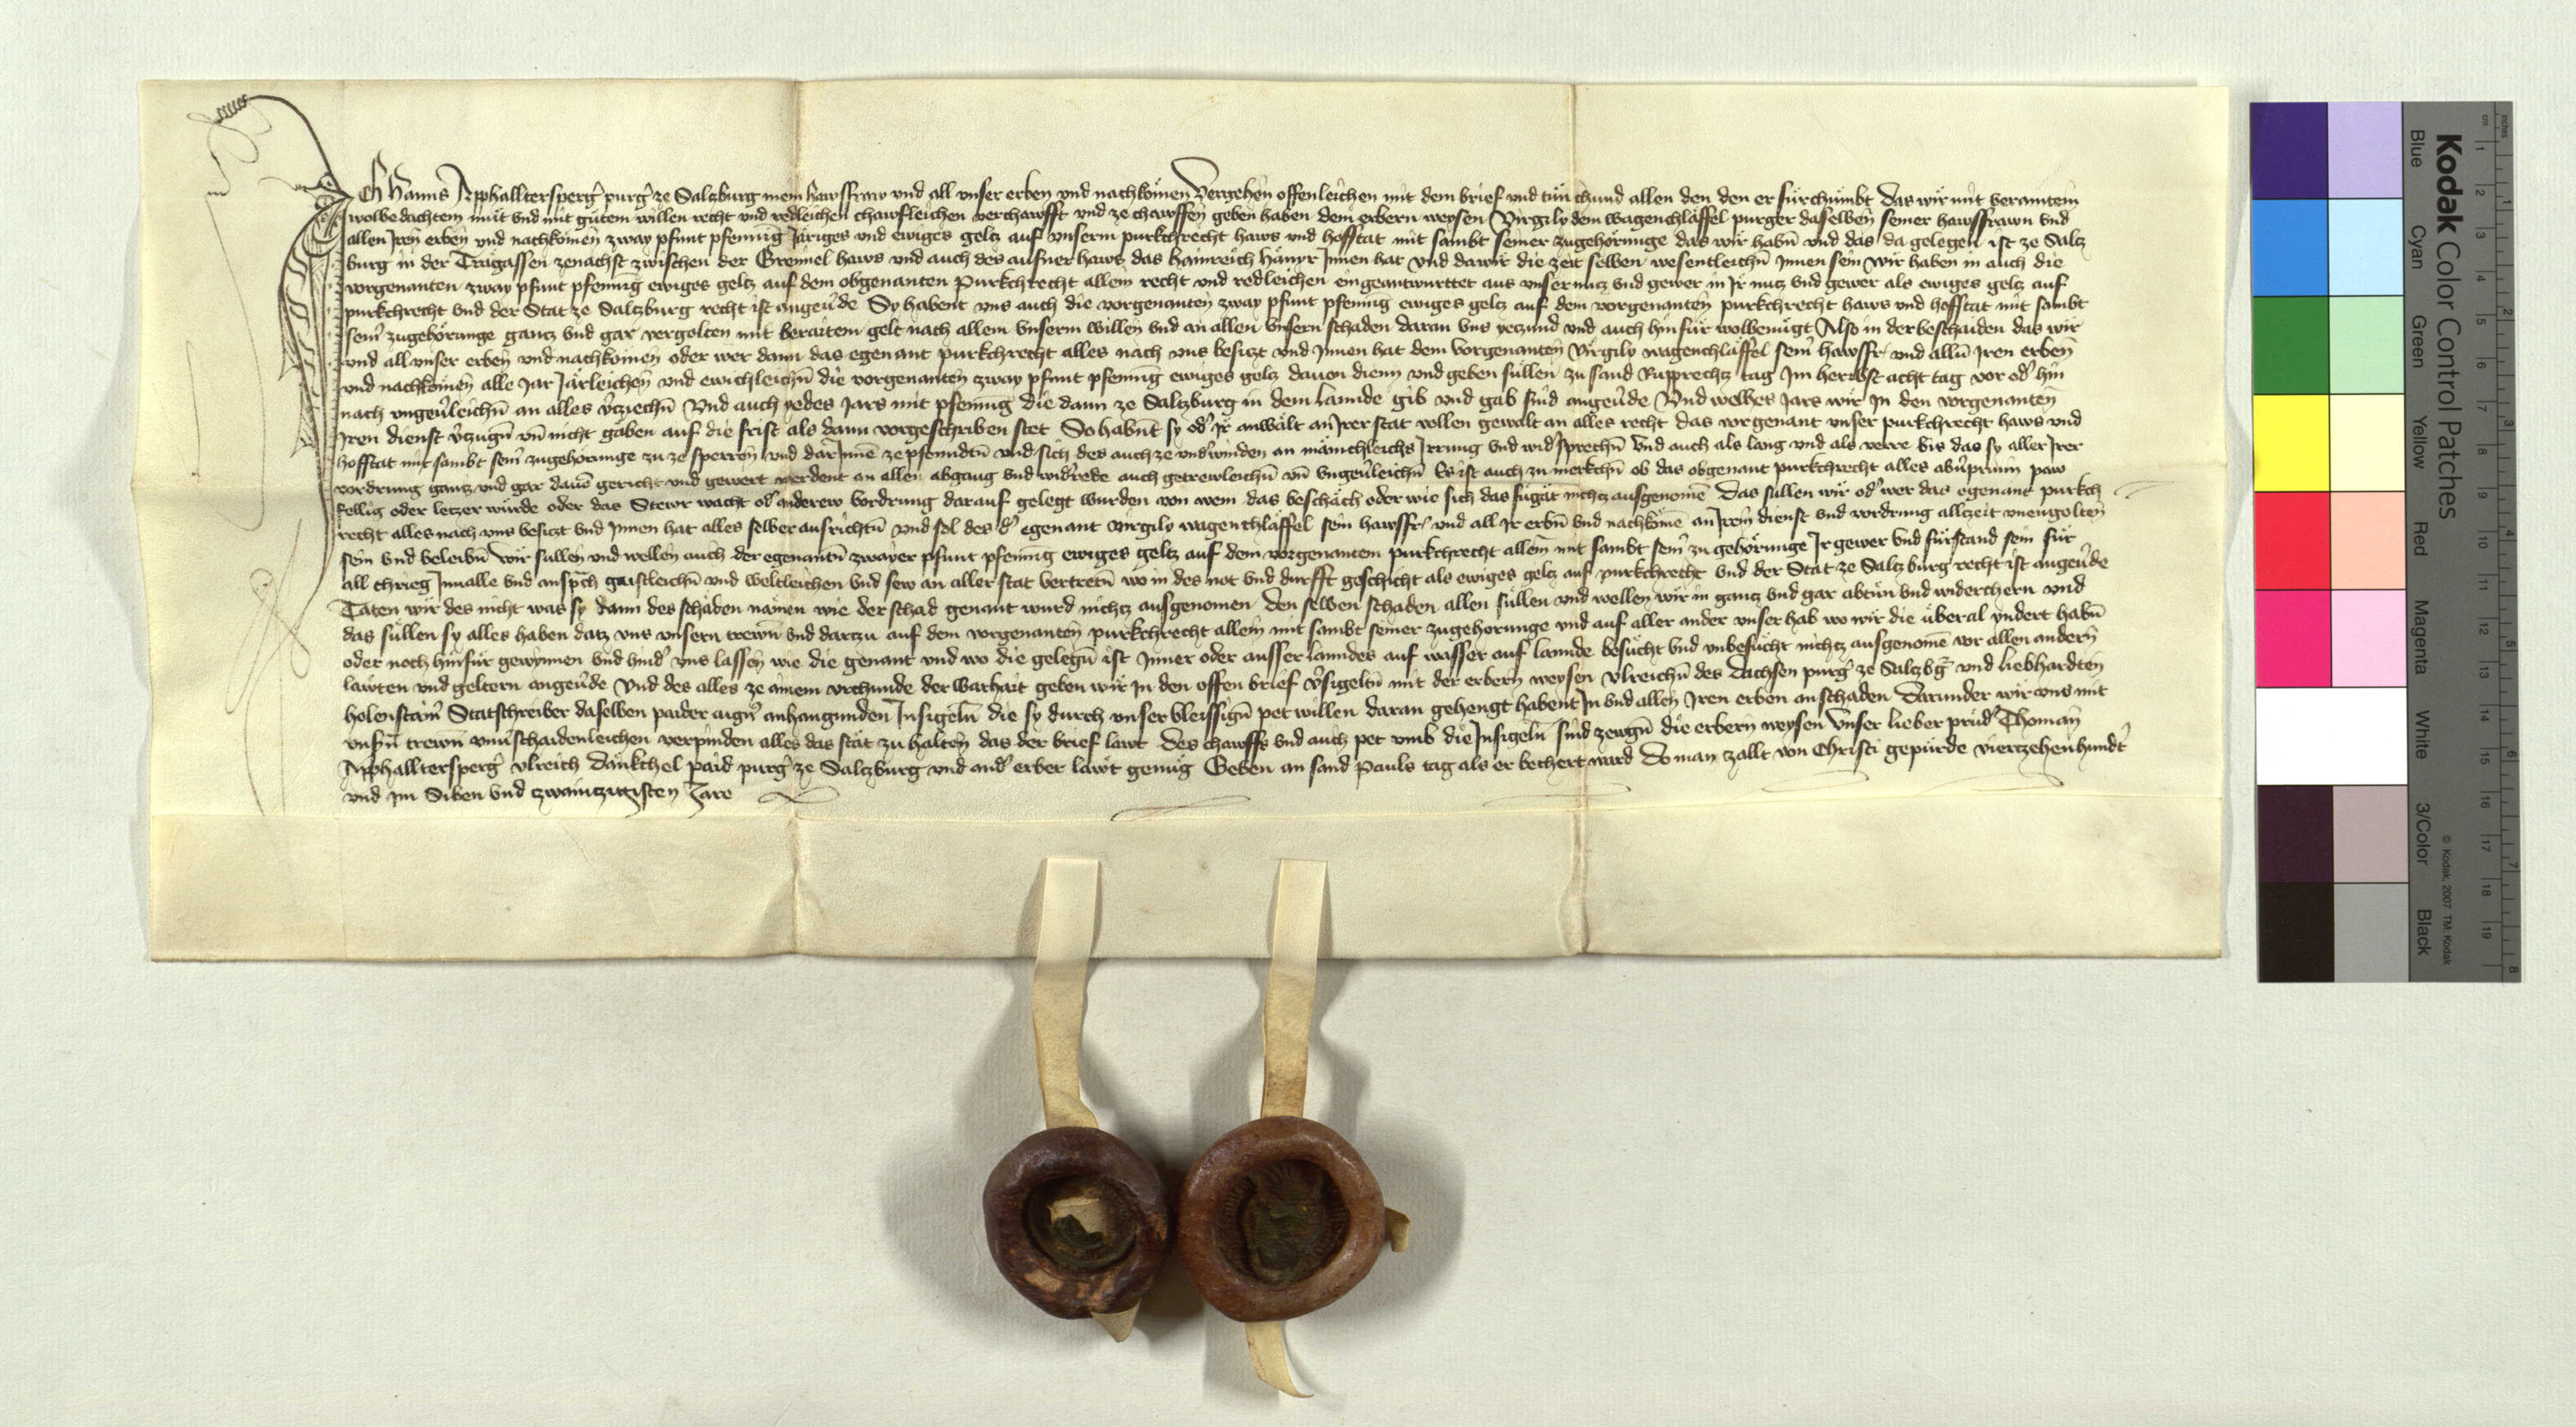 Ich Hanns Apphalltersperg̃ purg̃ ze Salczburg mein hawsfraw vnd all vnser erben vnd nachkömen Vergehen offenleichen mit dem brief vnd tün chund allen den den er fürchümbt Das wir mit veraintem
wolbedachtem müt vnd mit gütem willen recht vnd redleichen chawfleichen verchawfft vnd ze chawffen geben haben dem erbern weysen Virgily dem wagenchläffel purger daselben seiner hawsfrawn vnd
allen Iren erben vnd nachkömen zway pfunt pfennig Järiges vnd ewiges geltz auf vnserm purkchrecht haws vnd hofstat mit sambt seiner zugehörunge das wir habn̄ vnd das da gelegen ist ze Salcz
burg in der Tragassen zenachst zwischen der Gremel haws vnd auch des ausner haws das hainreich hänyr Innen hat vnd da wir die zeit selben wesentleichn̄ Innen sein wir haben in auch die
vorgenanten zway pfunt pfennig ewiges geltz auf dem obgenanten Purkchrecht allem recht vnd redleichen eingeantwurttet aus vnser nucz vnd gewer in Ir nucz vnd gewer als ewiges geltz auf
purkchrecht vnd der Stat ze Salczburg recht ist angeu̇de So habent vns auch die vorgenanten zway pfunt pfennig ewiges geltz auf dem vorgenanten purkchrecht haws vnd hofstat mit sambt
sein̄ zugehörunge gancz vnd gar vergolten mit beraitem gelt nach allem vnserm willen vnd an allen vnsern schaden daran vns yeczund vnd auch hinfür wolbenügt Also in der beschaiden das wir
vnd all vnser erben vnd nachkömen oder wer dann das egenant purkchrecht alles nach vns besiczt vnd Innen hat dem vorgenanten Virgily wagenchläffel sein̄ hawsfr vnd alln̄ Iren erben
vnd nachkömen alle Jar Järleichen vnd ewichleichn̄ die vorgenanten zway pfunt pfennig ewiges geltz dauon dienn vnd geben süllen zu sand Rupprechtz tag Im herbst acht tag vor od̓ hin
nach vngeu̇leichn̄ an alles v̓cziechn̄ Vnd auch yedes Jars mit pfennig die dann ze Salczburg in dem Lannde gib vnd gab sind angeu̇de Vnd welhes Jars wir In den vorgenanten
Iren dienst v̓czugn̄ vn̄ nicht gäben auf die frist als dann vorgeschriben stet So habnt sy od̓ Ir anwält an Irer stat vollen gewalt an alles recht das vorgenant vnser purkchrecht haws vnd
hofstat mit sambt sein̄ zugehörunge zu ze sperren vnd dar Innē ze pfenndtn̄ vnd sich des auch ze vnd̓winden an mänichleichs Irrung vnd wid̓sprechn̄ Vnd auch als lang vnd als verre bis das sy aller Irer
vordrung gancz vnd gar dauē gericht vnd gewert werdent an allen abgang vnd wid̓rede auch getrewleichn̄ vn̄ vngeu̇leichn̄ Es ist auch zu merkchn̄ ob das obgenant purkchrecht alles abu̇prunn paw
fellig oder leczer würde oder das Stewr wacht od̓ anderew vordrung darauf gelegt wurden von wem das beschäch oder wie sich das fügät nichcz ausgenomē Das sullen wir od̓ wer das egenant purkch
recht alles nach vns besiczt vnd Innen hat alles selber ausrichtn̄ vnd sol des d̓ egenant virgily wagenchläffel sein hawsfr vnd all Ir erbn̄ vnd nachkömē an Irem dienst vnd vordrung allczeit vnengolten
sein vnd beleibn̄ wir sullen vnd wellen auch der egenantn̄ zwayer pfunt pfennig ewiges geltz auf dem vorgenantem purkchrecht allem mit sambt sein̄ zu gehörunge Ir gewer vnd fürstand sein für
all chrieg Inualle vnd ansp̄ch gaistleichn̄ vnd weltleichen vnd sew an aller stat vertretn̄ wo in des not vnd durfft geschicht als ewiges geltz auf purkchrecht vnd der Stat ze Salczburg recht ist angeu̇de
Täten wir des nicht was sy dann des schaden nämen wie der schad genant wurd nichcz ausgenomen den selben schaden allen süllen vnd wellen wir in gancz vnd gar abtün vnd widerchern vnd
das sullen sy alles haben datz vns vnsern trewn̄ vnd darczu auf dem vorgenanten purkchrecht allem mit sambt seiner zugehorunge vnd auf aller ander vnser hab wo wir die überal yndert habn̄
oder noch hinfür gewynnen vnd hind̓ vns lassen wie die genant vnd wo die gelegn̄ ist Inner oder ausser lanndes auf wasser auf lannde besücht vnd vnbesücht nichcz ausgenomē vor allen andern
läwten vnd geltern angeu̇de Vnd des alles ze ainem vrchunde der warhait geben wir In den offen brief v̓sigeltn̄ mit der erbern weysen vlreichn̄ des Dachsen purg̓ ze Salczbg̃ vnd liebhardten
holenstain̄ Statschreiber daselben paider aign̄ anhangunden Insigeln̄ die sy durch vnser vleissign̄ pet willen daran gehengt habent In vnd allen Iren erben an schaden Darunder wir vns mit
vnsn̄ trewn̄ vnuschaidenleichen verpinden alles das stät zu halten das der brief lawt Des chawffs vnd auch pet vmb die Insigeln̄ sind zewgn̄ die erbern weysen vnser lieber prud̓ Thoman
Apphalltersperg̃ vlreich Dänkchel paid purg̓ ze Salczburg vnd and̓ erber läwt genüg Geben an sand Pauls tag als er bechert ward Do man zallt von Christi gepürde vierczehenhund̓t
vnd im Siben vnd zwainczigisten Jare
Kodak Color Control Patches
Blue Cyan Green Yellow Red Magenta White 3/Color Black
© Kodak, 2007 TM: Kodak
cm 1 2 3 4 5 6 7 8 9 10 11 12 13 14 15 16 17 18 19
inches 1 2 3 4 5 6 7 8